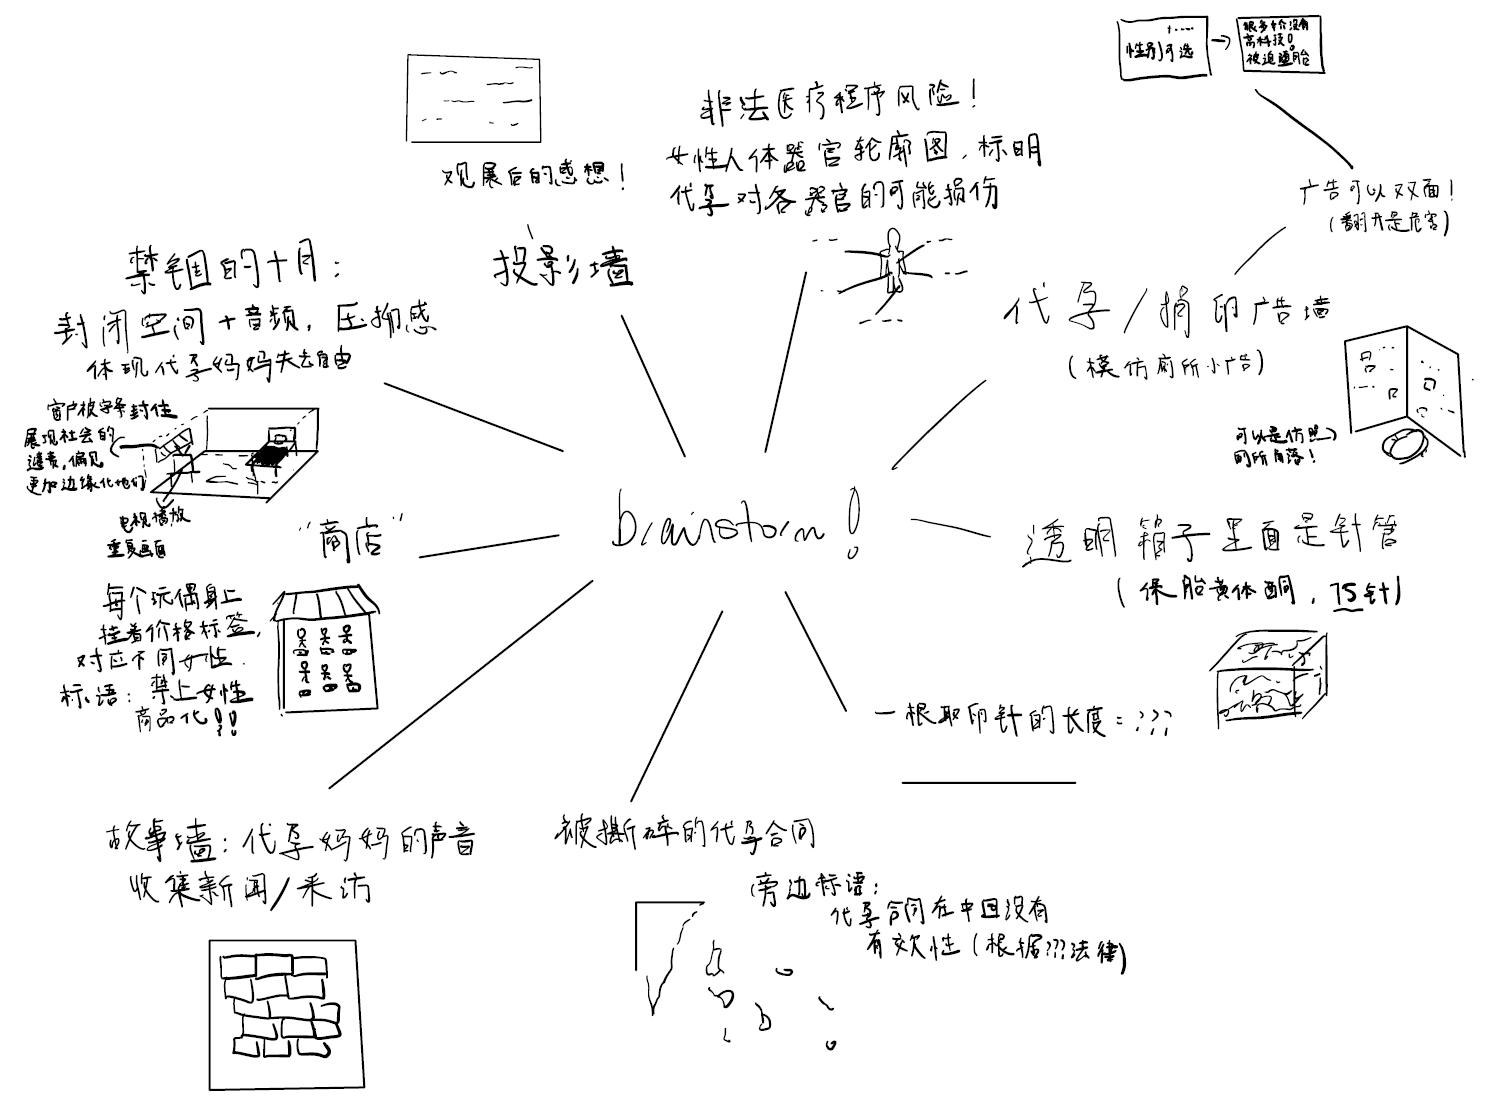 性别可选
很多中介没有
高科技!
被迫堕胎
广告可以双面!
(翻开是危害)
观展后的感想!
投影墙
非法医疗程序风险!
女性人体器官轮廓图,标明
代孕对各器官的可能损伤
代孕/捐卵广告墙
(模仿厕所小广告)
可以是仿照
厕所角落!
禁锢的十月:
封闭空间+音频,压抑感
体现代孕妈妈失去自由
窗户被字条封住
展现社会的
谴责,偏见
更加边缘化她们
电视播放
重复画面
brainstorm!
透明箱子里面是针管
(保胎黄体酮,75针)
"商店"
每个玩偶身上
挂着价格标签,
对应不同女性.
标语:禁止女性
商品化!!
一根取卵针的长度=???
故事墙:代孕妈妈的声音
收集新闻/采访
被撕碎的代孕合同
旁边标语:
代孕合同在中国没有
有效性(根据???法律)